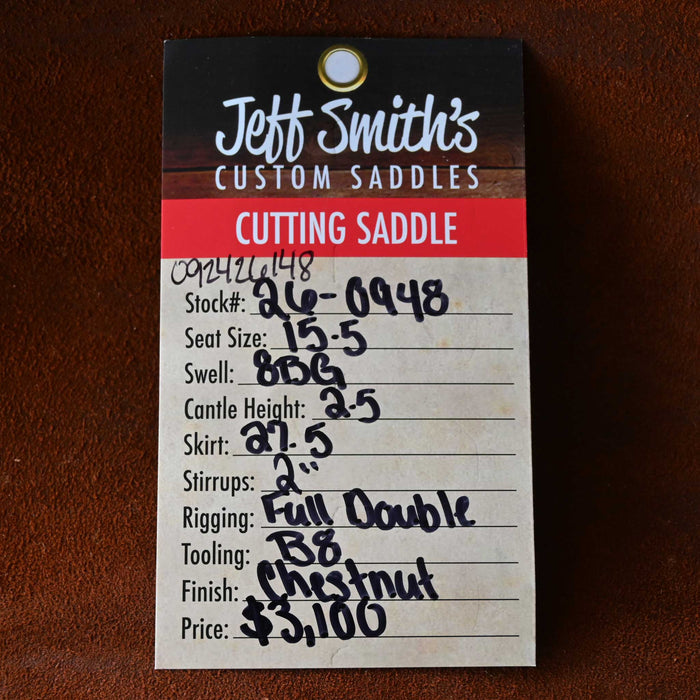 Jeff Smith's
CUSTOM SADDLES
CUTTING SADDLE
092426148
Stock#: 26-0948
Seat Size: 15.5
Swell: 8BG
Cantle Height: 2.5
Skirt: 27.5
Stirrups: 2"
Rigging: Full Double
Tooling: B8
Finish: Chestnut
Price: $3,100